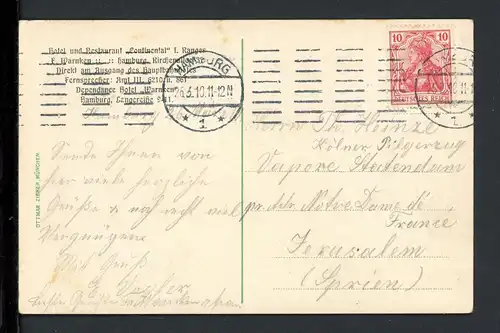 Hotel und Restaurant „Continental“ I. Ranges
F. Warnken :-: Hamburg, Kirchenallee
Direkt am Ausgang des Hauptbahnhofes
Fernsprecher: Amt III. 6210 u. 861
Dependance Hotel „Warnken“
Hamburg, Langereihe
HAMBURG
24.3.10.11-12N
* 1 *
10 10
DEUTSCHES REICH
Hamburg
Sende Ihnen von
hier viele herzliche
Grüße & noch recht viel
Vergnügen
Mit Gruß
Herrn Th. Heinze
Kölner Pilgerzug
Vapore Statendam
pr. Adr. Notre Dame de
France
Jerusalem
(Syrien)
OTTMAR ZIEHER, MÜNCHEN